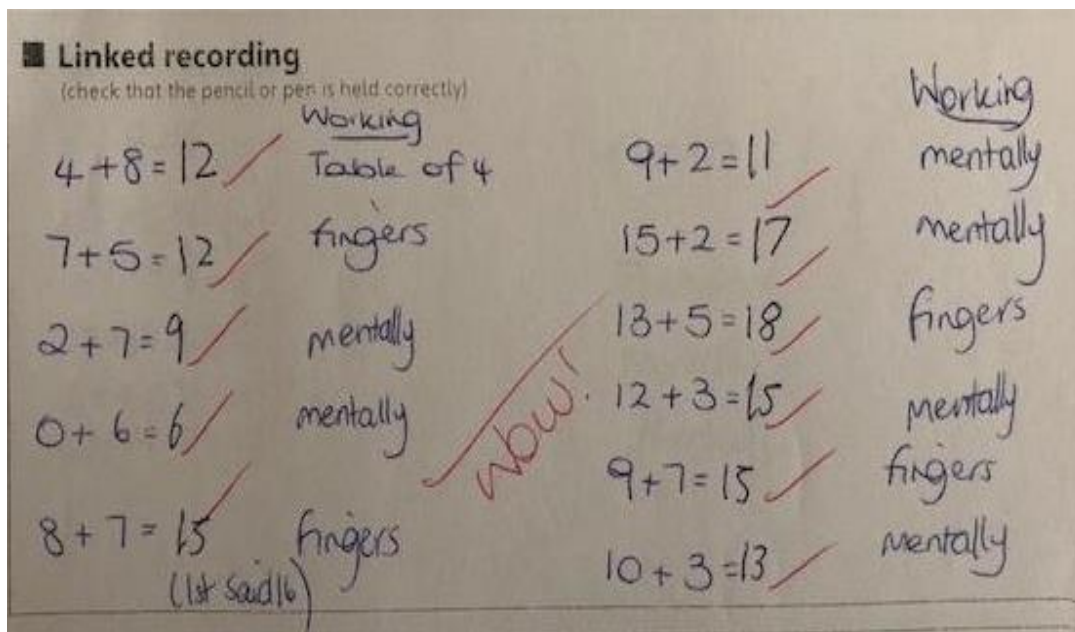 Linked recording
(check that the pencil or pen is held correctly)
Working
4 + 8 = 12 Table of 4
7 + 5 = 12 fingers
2 + 7 = 9 mentally
0 + 6 = 6 mentally
8 + 7 = 15 fingers
(1st said 16)
wow!
Working
9 + 2 = 11 mentally
15 + 2 = 17 mentally
13 + 5 = 18 fingers
12 + 3 = 15 mentally
9 + 7 = 15 fingers
10 + 3 = 13 mentally